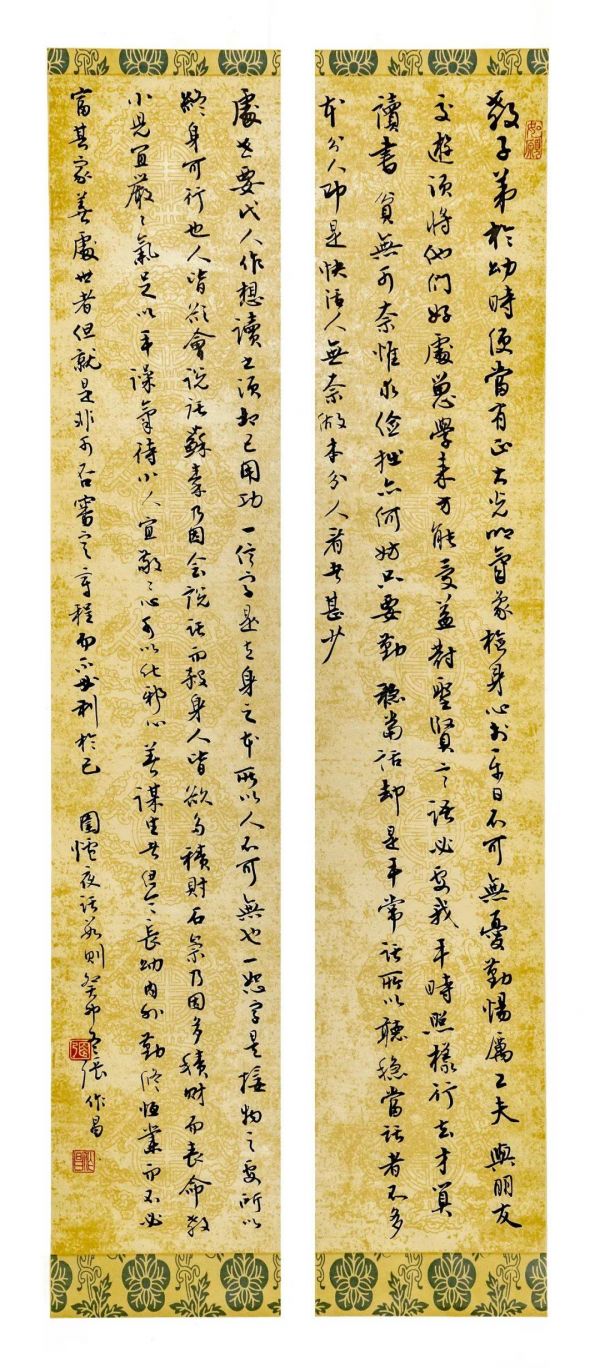 如願
教子弟於幼時便當有正大光明氣象檢身心於平日不可無憂勤惕厲工夫 與朋友
交遊須將他們好處留心學来方能受益對聖賢言語必要我平時照樣行去才算
讀書 貧無可奈惟求儉拙亦何妨只要勤 穩當話却是平常話所以聽穩當話者不多
本分人即是快活人無奈做本分人者甚少
處世要代人作想讀书須切己用功 一信字是立身之本所以人不可無也一恕字是接物之要所以
終身可行也人皆欲會說話蘇秦乃因会說話而殺身人皆欲多積財石崇乃因多積財而喪命教
小兒宜嚴嚴氣足以平躁氣待小人宜敬敬心可以化邪心 善謀生者但令長幼内外勤修恒業而不必
富其家善處世者但就是非可否審定章程而不必利於己 圍爐夜話數則癸卯冬張作昌